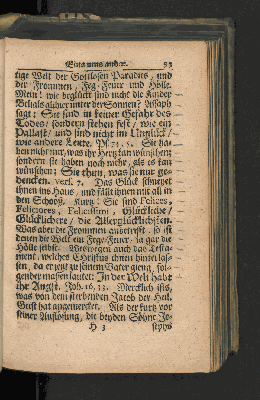 Eins ums ander. 93
tige Welt der Gottlosen Paradeis, und
der Frommen, Feg-Feuer und Hölle.
Mein! wie beglückt sind nicht die Kinder
Belials allhier unter der Sonnen? Assaph
sagt: Sie sind in keiner Gefahr des
Todes/ sondern stehen fest/ wie ein
Pallast/ und sind nicht im Unglück/
wie andere Leute. Ps. 73. 5. Sie ha-
ben nicht nur, was ihr Hertz kan wünschen,
sondern sie haben noch mehr, als es kan
wünschen: Sie thun, was sie nur ge-
dencken. vers. 7. Das Glück schneyet
ihnen ins Haus, und fällt ihnen mit all in
den Schooß. Kurtz: Sie sind Felices,
Feliciores, Felicissimi, Glückliche/
Glücklichere/ die Allerglücklichsten.
Was aber die Frommen anbetrifft, so ist
denen die Welt ein Feg-Feuer, ja gar die
Hölle selbst. Weswegen auch das Testa-
ment, welches Christus ihnen hinterlas-
sen, da er jetzt zu seinem Vater gieng, fol-
gender massen lautet: In der Welt habt
ihr Angst. Joh. 16. 33. Mercklich ists,
was von dem sterbenden Jacob der Heil.
Geist hat angemercket. Als der kurtz vor
seiner Auflösung, die beyden Söhne Jo-
H 3 sephs